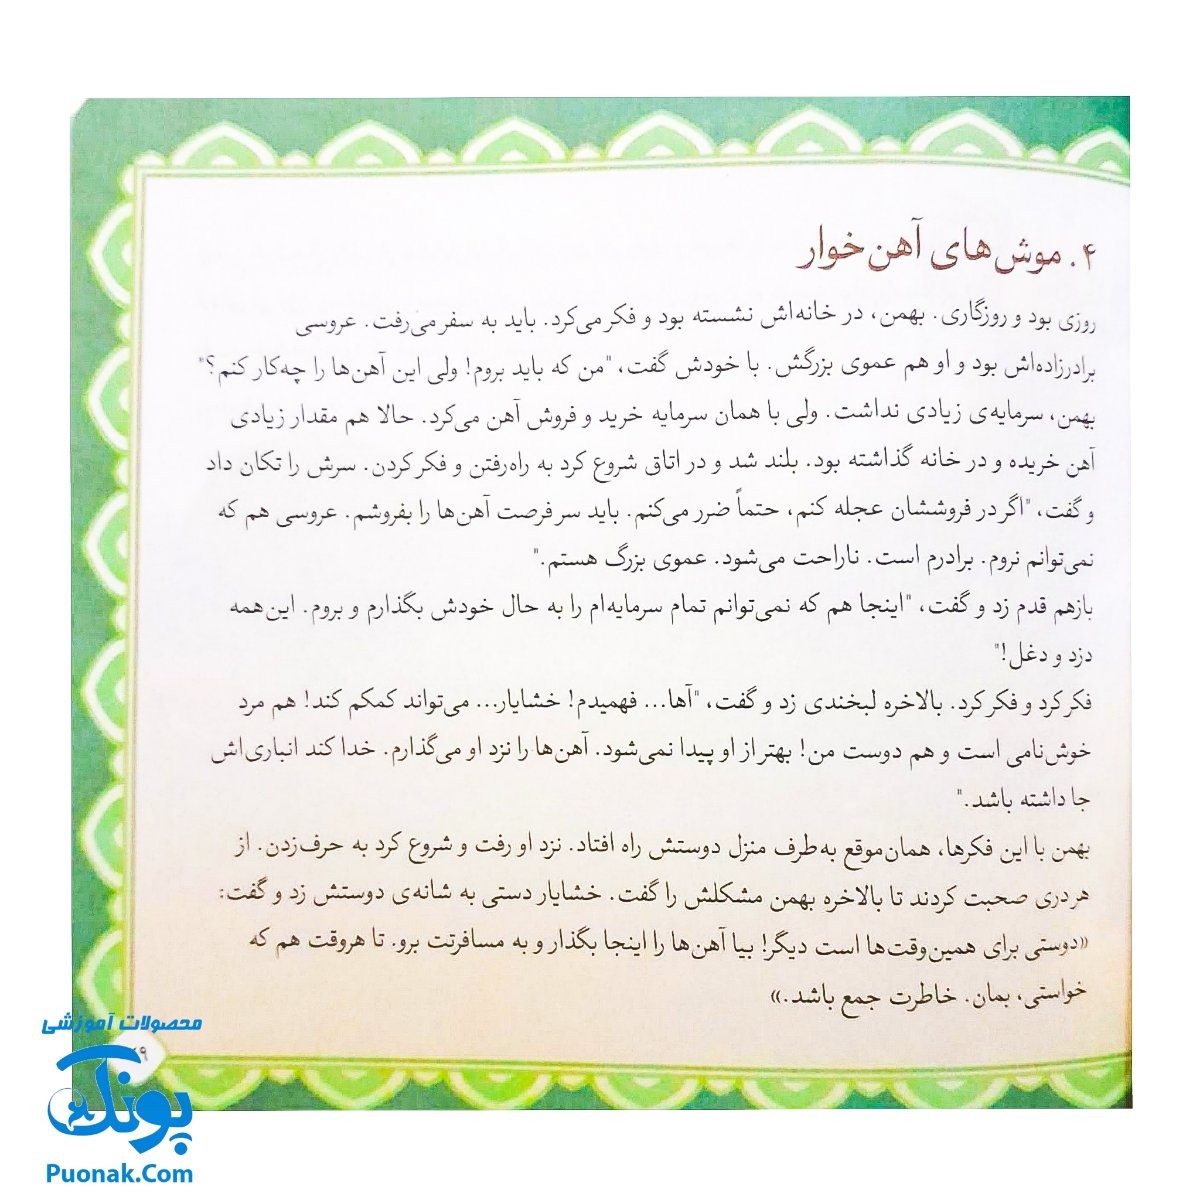 ۴. موش‌های آهن‌خوار
روزی بود و روزگاری. بهمن، در خانه‌اش نشسته بود و فکر می‌کرد. باید به سفر می‌رفت. عروسی
برادرزاده‌اش بود و او هم عموی بزرگش. با خودش گفت، "من که باید بروم! ولی این آهن‌ها را چه‌کار کنم؟"
بهمن، سرمایه‌ی زیادی نداشت. ولی با همان سرمایه خرید و فروش آهن می‌کرد. حالا هم مقدار زیادی
آهن خریده و در خانه گذاشته بود. بلند شد و در اتاق شروع کرد به راه‌رفتن و فکر کردن. سرش را تکان داد
و گفت، "اگر در فروششان عجله کنم، حتماً ضرر می‌کنم. باید سر فرصت آهن‌ها را بفروشم. عروسی هم که
نمی‌توانم نروم. برادرم است. ناراحت می‌شود. عموی بزرگ هستم."
بازهم قدم زد و گفت، "اینجا هم که نمی‌توانم تمام سرمایه‌ام را به حال خودش بگذارم و بروم. این‌همه
دزد و دغل!"
فکر کرد و فکر کرد. بالاخره لبخندی زد و گفت، "آها... فهمیدم! خشایار... می‌تواند کمکم کند! هم مرد
خوش‌نامی است و هم دوست من! بهتر از او پیدا نمی‌شود. آهن‌ها را نزد او می‌گذارم. خدا کند انباری‌اش
جا داشته باشد."
بهمن با این فکرها، همان‌موقع به‌طرف منزل دوستش راه افتاد. نزد او رفت و شروع کرد به حرف‌زدن. از
هر دری صحبت کردند تا بالاخره بهمن مشکلش را گفت. خشایار دستی به شانه‌ی دوستش زد و گفت:
«دوستی برای همین‌وقت‌ها است دیگر! بیا آهن‌ها را اینجا بگذار و به مسافرتت برو. تا هروقت هم که
خواستی، بمان. خاطرت جمع باشد.»
محصولات آموزشی
پونک
Puonak.Com